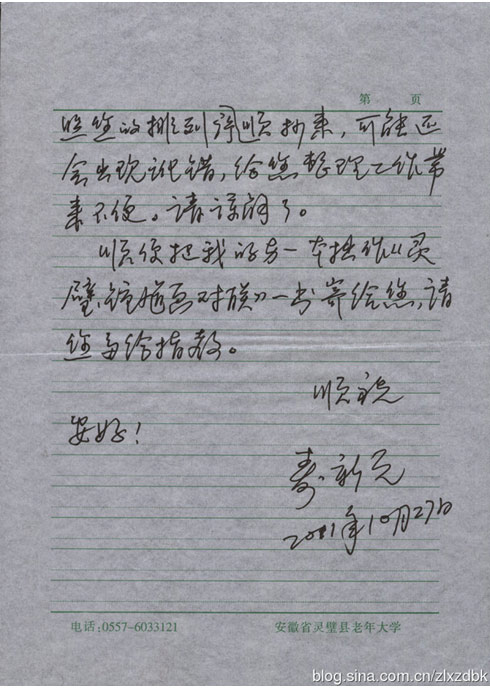 第 页
照您的排列序顺抄来，可能还
会出现讹错，给您整理工作带
来不便。请谅解了。
顺便把我的另一本拙作《灵
璧钟馗画对联》一书寄给您，请
您多给指教。
顺祝
安好！
寿新元
2011年10月27日
电话:0557-6033121 安徽省灵璧县老年大学
blog.sina.com.cn/zlxzdbk